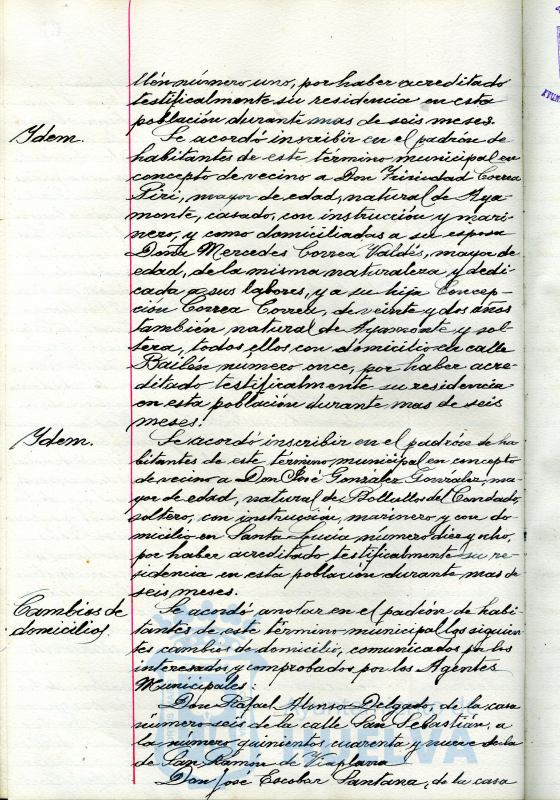 llén número uno, por haber acreditado
testificalmente su residencia en esta
población durante mas de seis meses.
Ydem.
Se acordó inscribir en el padrón de
habitantes de este término municipal en
concepto de vecino a Don Trinidad Correa
Piri, mayor de edad, natural de Aya-
monte, casado, con instrucción y mari-
nero, y como domiciliadas a su esposa
Doña Mercedes Correa Valdés, mayor de
edad, de la misma naturaleza y dedi-
cada a sus labores, y a su hija Concep-
ción Correa Correa, de veinte y dos años
también natural de Ayamonte y sol-
tera, todos ellos con domicilio en calle
Bailén numero once, por haber acre-
ditado testificalmente su residencia
en esta población durante mas de seis
meses.
Ydem.
Se acordó inscribir en el padrón de ha-
bitantes de este término municipal en concepto
de vecino a Don José González González, ma-
yor de edad, natural de Bollullos del Condado,
soltero, con instrucción, marinero y con do-
micilio en Santa Lucia número diez y ocho,
por haber acreditado testificalmente su re-
sidencia en esta población durante mas de
seis meses.
Cambios de
domicilios.
Se acordó anotar en el padrón de habi-
tantes de este término municipal los siguien-
tes cambios de domicilio, comunicados por los
interesados y comprobados por los Agentes
Municipales:
Don Rafael Alonso Delgado, de la casa
número seis de la calle San Sebastián, a
la número quinientos cuarenta y nueve de la
de San Ramón de Viaplana
Don José Escobar Santana, de la casa
HUELVA